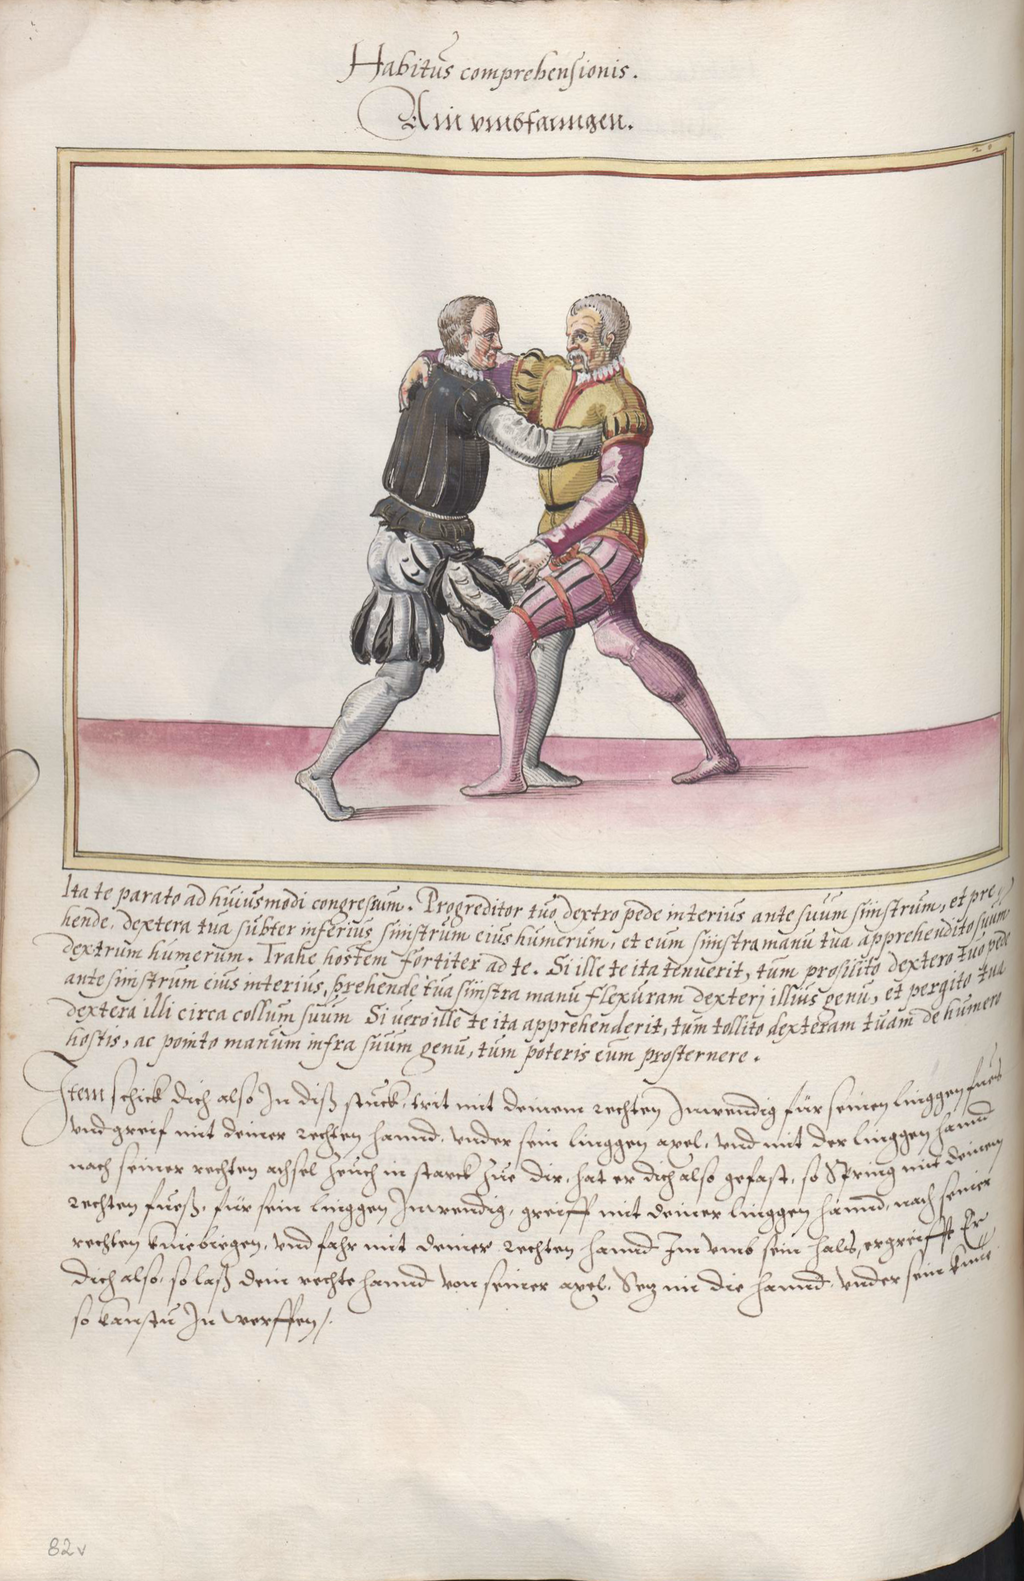 Habitus comprehensionis.
Ain umbfanngen.
20
Ita te parato ad huiusmodi congressum. Progreditor tuo dextro pede interius ante suum sinistrum, et pre
hende, dextera tua subter inferius sinistrum eius humerum, et eum sinistra manu tua apprehendito suum
dextrum humerum. Trahe hostem fortiter ad te. Si ille te ita tenuerit, tum prosilito dextero tuo pede
ante sinistrum eius interius, prehende tua sinistra manu flexuram dexterj illius genu, et pergito tua
dextera illi circa collum suum Si uero ille te ita apprehenderit, tum tollito dexteram tuam de humero
hostis, ac ponito manum infra suum genu, tum poteris eum prosternere.
Item schick dich also In diß stuck, trit mit deinem rechten Inwendig für seinen linggen fues
vnd greif mit deiner rechten hannd, vnder sein linggen axel, vnd mit der linggen hannd
nach seiner rechten achsel zeuch in starck zue dir, hat er dich also gefast, so Spring mit deinem
rechten fueß, für sein linggen Inwendig, greiff mit deiner linggen hannd, nach seiner
rechten kniebiegen, vnd fahr mit deiner rechten hannd Im vmb sein hals, ergreifft Er
dich also, so laß dein rechte hannd von seiner axel, Setz im die hannd, vnder sein knüe
so kanstu In werffen.
82v